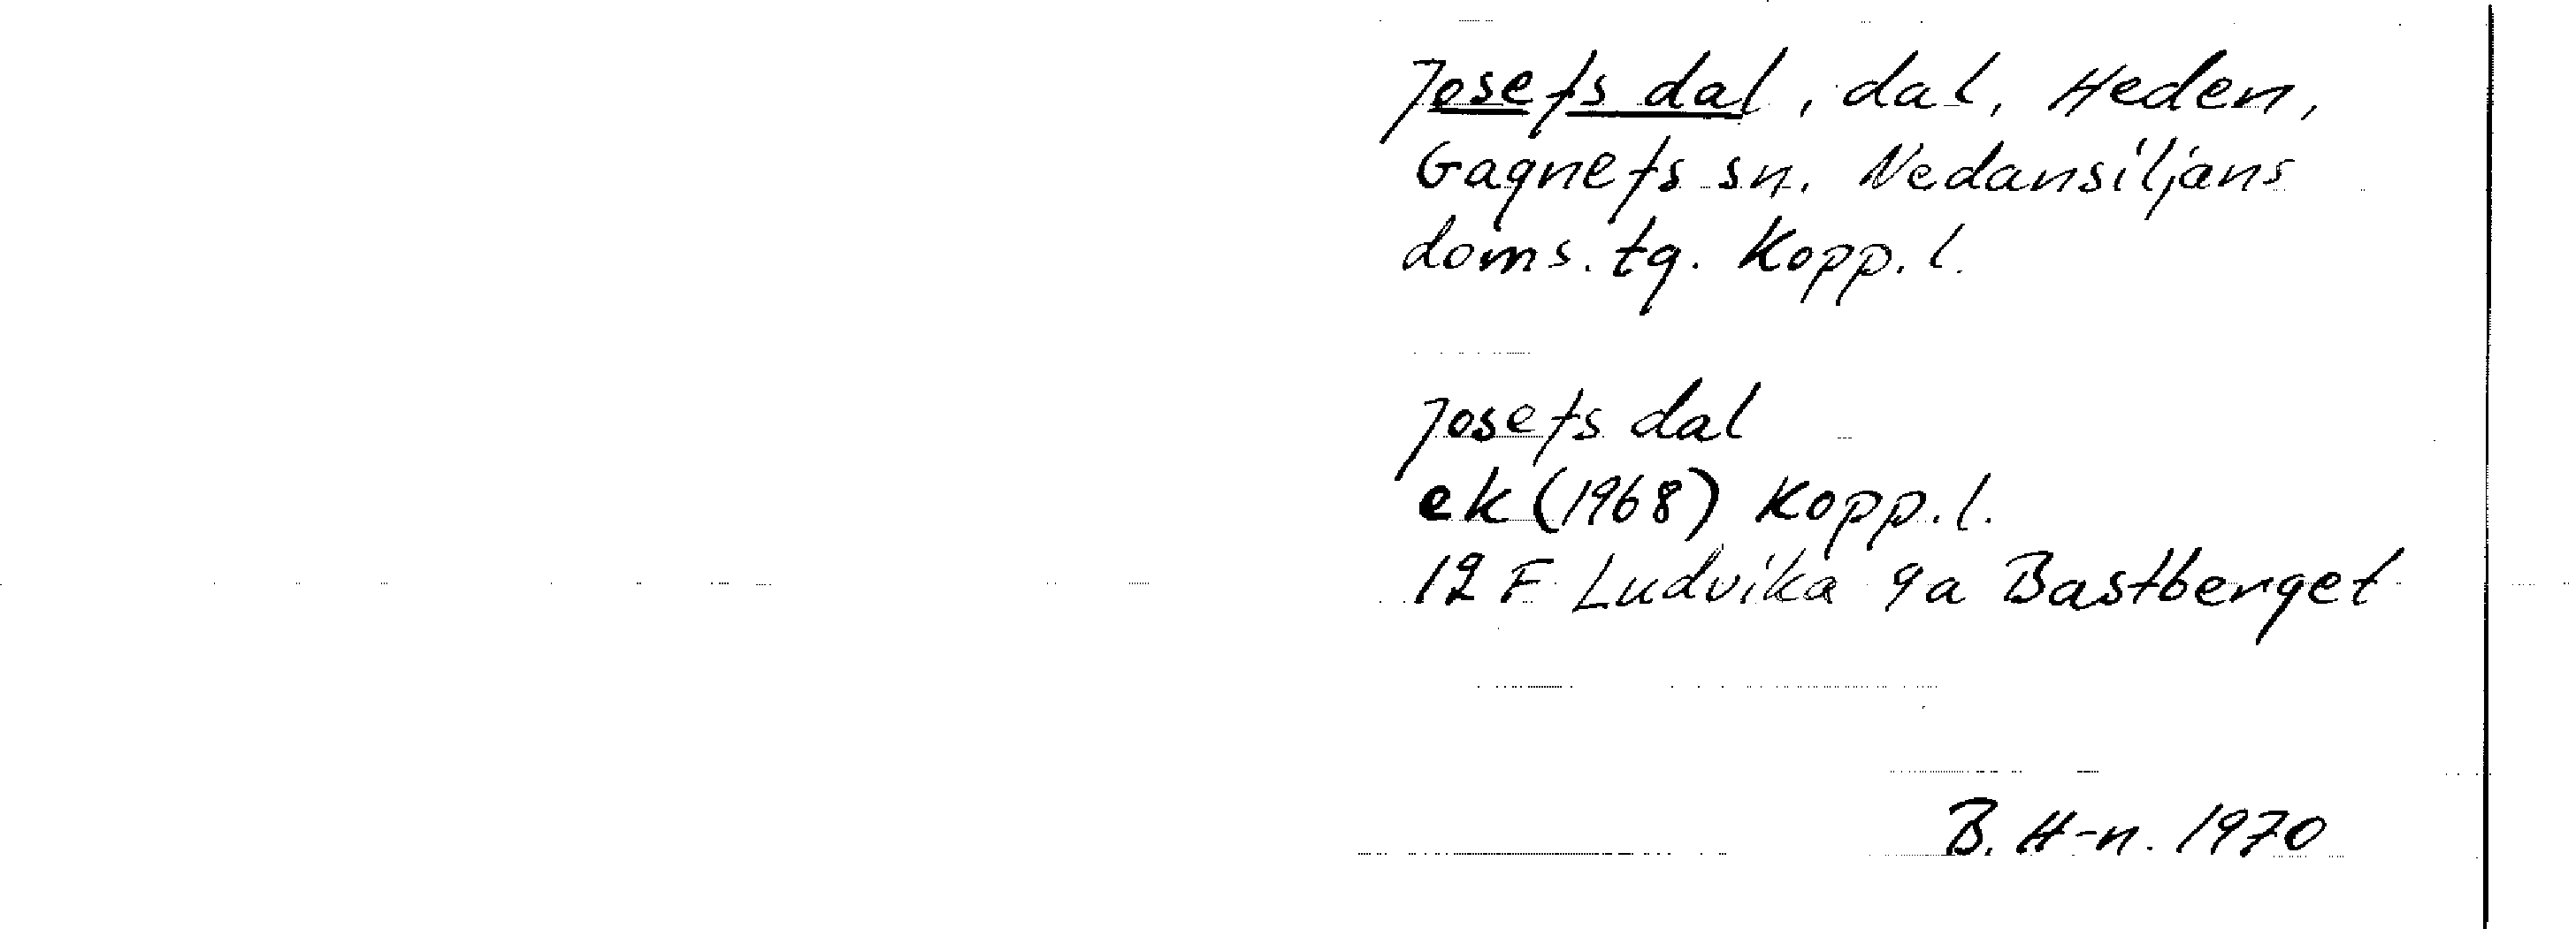 Josefs dal, dal, Heden,
Gagnefs sn. Nedansiljans
doms. tg. Kopp. l.
Josefs dal
ek (1968) Kopp. l.
12 F Ludvika 9a Bastberget
B. H-n. 1970